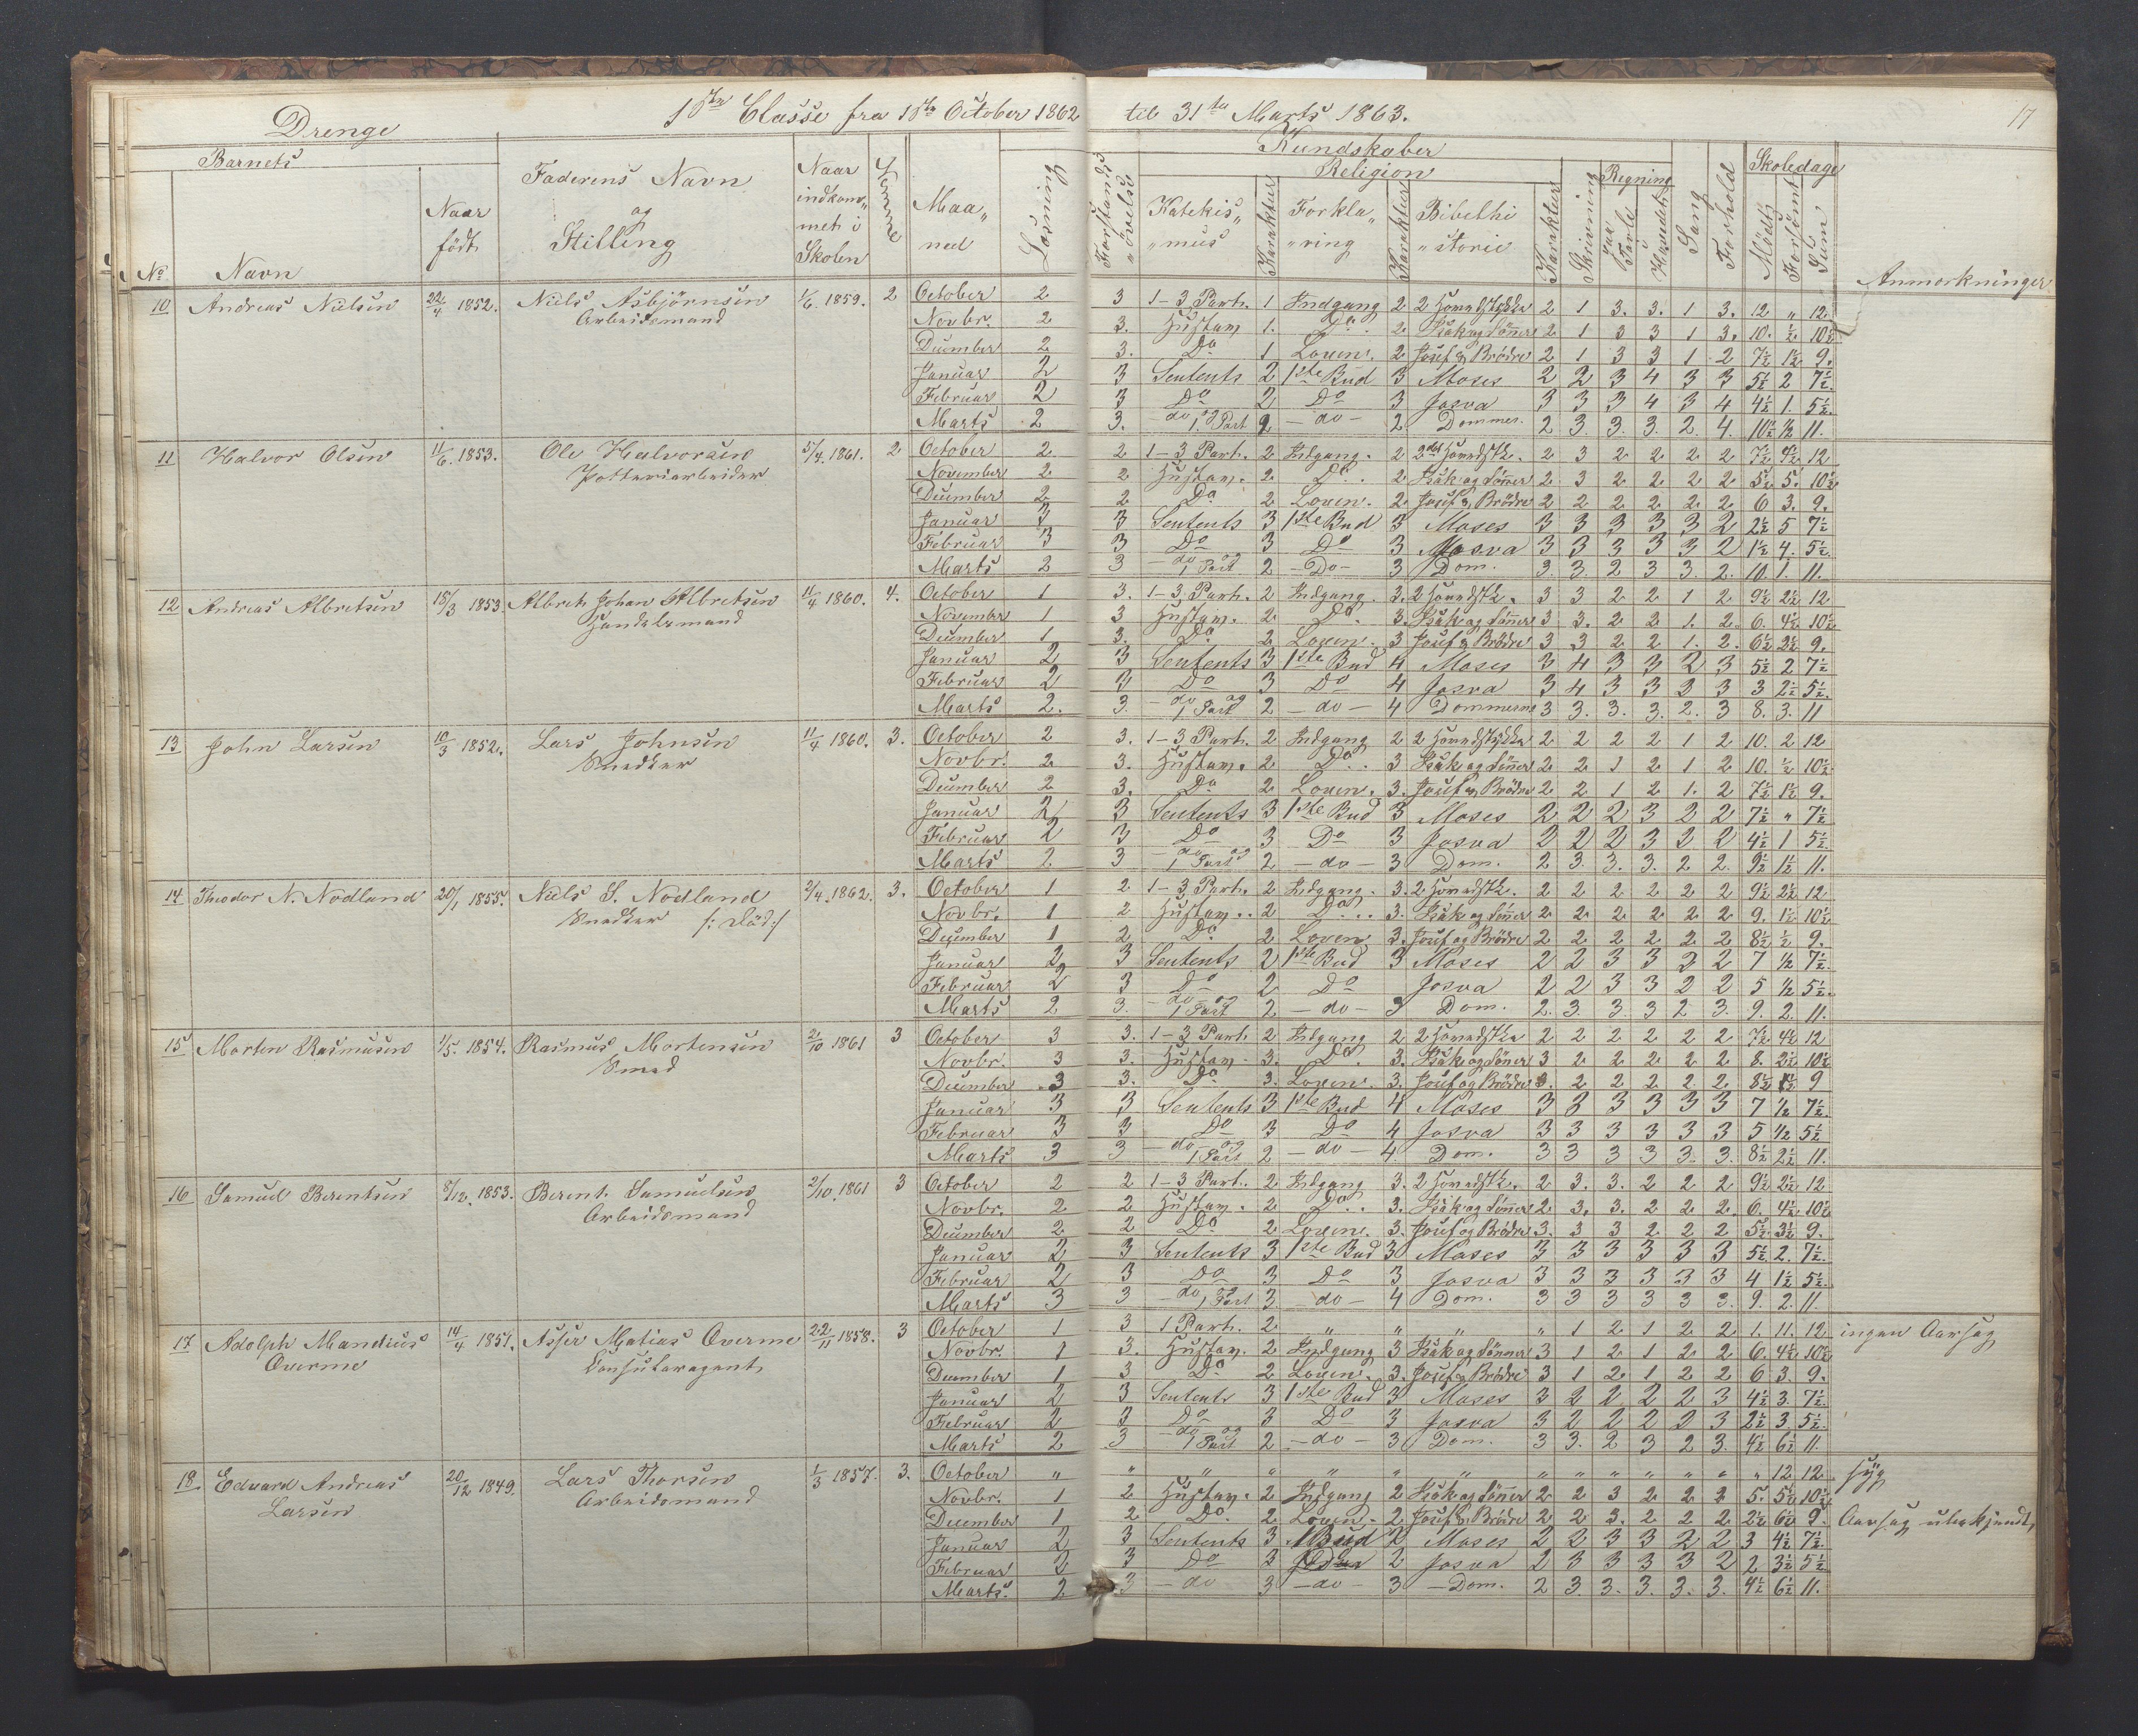 Drenge 1ste Classe fra 1ste October 1862 til 31te Marts 1863. 17
Barnets Kundskaber
Faderens Navn og Stilling Naar indkommet i Skolen Evne Maaned Læsning Forstandsøvelse Religion Regning Sang Forhold Skoledage
No Navn Naar født Katekismus Karakter Forklaring Karakter Bibelhistorie Karakter Skrivning paa Tavle Hovedet Mødt Forsømt Sum Anmerkninger
10 Andreas Nielsen 22/4 1852. Niels Asbjørnsen 1/6. 1859. 2 October 2 3 1-3 Part. 1 Indgang 2 2 Hovedstykke 2 1 3. 3. 1 3. 12 „ 12
Arbeidsmand Novbr. 2 3. Hustavl. 1. Do. 2 Isak og Sønner 2 1 3 3 1 3. 10. ½ 10½
December 2 3. Do 1 Loven. 2 Josef & Brødre 2 1 3 3 1 2 7½ 1½ 9.
Januar 2 3 Sentents 2 1ste Bud 3 Moses 2 2 3 4 3 3 5½ 2 7½.
Februar 2 3 Do 2 Do 3 Josva 3 3 3 4 3 4 4½ 1. 5½.
Marts 2 3. do og 1 Part 2 - do - 2 Dommer. 2 3. 3. 3. 2. 4. 10½ ½ 11.
11 Halvor Olsen 11/6. 1853. Ole Halvorsen 5/4. 1861. 2 October 2 2 1-3 Part. 2 Indgang. 2 2det Hovedstk. 2 3 2 2 2 2 7½ 4½ 12
Potteriarbeider November 2 2 Hustavl. 2. Do. 2 Isak og Sønner 2. 3 2 2 2 2 5½ 5. 10½
December 2 2 Do 2 Loven. 2 Josef & Brødre 2 2 2 2 2 2 6 3. 9.
Januar 3 3 Sentents 3 1ste Bud 3 Moses 3 3 3 3 3 2 2½ 5 7½
Februar 3 3 Do 3 Do 3 Josva 3 3 3 3 3 2 1½ 4. 5½.
Marts 2 3 do og 1 Part 2 - Do - 3 Dom. 3. 3. 2 3 3. 2. 10. 1. 11.
12 Andreas Albretsen 15/3 1853 Albret Johan Albretsen 11/4 1860. 4. October 1 3. 1-3 Part. 2 Indgang. 3. 2 Hovedstk. 3 3 2 2 1 2 9½ 2½ 12
Handelsmand November 1 3 Hustavl. 2. Do. 3. Isak og Sønner 3 3. 2 2 1. 2. 6. 4½ 10½
December 1 3. Do. 2 Loven. 3 Josef & Brødre 3 3 2 2 1. 2. 6½ 2½ 9.
Januar 2 3 Sentents 3 1ste Bud 4 Moses 3 4 3 3 2 3 5½ 2 7½
Februar 2 3 Do 3 Do 4 Josva 3 4 3 3 3 3 3 2½ 5½.
Marts 2. 3. do og 1 Part 2 - do - 4 Dommerne 3 3. 3. 3. 2. 3 8. 3. 11
13 John Larsen 10/3 1852. Lars Johnsen 11/4 1860. 3. October 2 3. 1-3 Part. 2 Indgang 2 2 Hovedstykke 2 2 2 2 1 2 10. 2 12
Snedker Novbr. 2 3. Hustavl. 2 Do. 3 Isak og Sønner 2 2 1 2 1 2 10. ½ 10½
December 2 3. Do 2 Loven. 3. Josef & Brødre 2 2 1 2 1. 2 7½ 1½ 9.
Januar 2 3 Sentents 3 1ste Bud 3 Moses 2 2 2 3 2 2 7½ „ 7½
Februar 2 3 Do 3 Do 3 Josva 2 2 2 3 2 2 4½ 1 5½
Marts 2 3 do og 1 Part 2 - do - 3 Dom. 2 3. 3. 3. 2 2. 9½ 1½ 11.
14 Theodor N. Nødland 20/1 1855. Niels S. Nødland 2/4. 1862. 3. October 1 2 1-3 Part. 2 Indgang. 3. 2 Hovedstk. 2 2 2 2 2 2 9½ 2½ 12
Snedker /: död :/ Novbr. 1 2 Hustavl. 2 Do. 3. Isak og Sønner 2 2 2 2 2 2 9. 1½ 10½
December 1 2 Do. 2 Loven 3. Josef og Brødre 2 2 2 2 2 2 8½ ½ 9.
Januar 2 3 Sentents 2 1ste Bud 3 Moses 2 2 3 3 2 2 7 ½ 7½.
Februar 2 3 Do 2 Do Josva 2 2 3 3 2 2 5 ½ 5½.
Marts 2 3. do og 1 Part 2 - do - 3 Dom. 2. 3. 3. 3 2 3. 9. 2. 11.
15 Morten Rasmusen 1/5. 1854. Rasmus Mortensen 2/10 1861 3 October 3 3. 1-3 Part. 2 Indgang 2 2 Hovedstk 2 2 2 2 2 2 7½ 4½ 12
Smed Novbr. 3 3. Hustavl. 3. Do. 3. Isak og Sønner 3 2 2 2 2 2 8. 2½ 10½
December 3 3. Do. 3. Loven. 3. Josef og Brødre 3. 2 2 2 2 2 8½ ½ 9
Januar 3 3 Sentents 3 1ste Bud 4 Moses 3 3 3 3 3 3 7 ½ 7½.
Februar 3 3 Do 3 Do 4 Josva 3 3 3 3 3 3 5 ½ 5½
Marts 3 3 do og 1 Part 2 - do - 4 Dom. 3 3 3 3 3. 3. 8½ 2½ 11.
16 Samuel Berentsen 8/12. 1853. Berent Samuelsen 2/10. 1861 3 October 2 2 1-3 Part. 2 Indgang 3. 2 Hovedstk. 2 3. 3. 2 2 2 9½ 2½ 12
Arbeidsmand Novbr. 2 2 Hustavl. 2 Do. 3. Isak og Sønner 2. 3. 3. 2 2 2. 6. 4½ 10½
December 2 2 Do 2 Loven. 3. Josef og Brødre 3. 3 3 2 2 2 5½. 3½ 9.
Januar 2 3 Sentents 3 1ste Bud 3 Moses 3 3 3 3 3 3 5½. 2. 7½.
Februar 2 3 Do 3 Do 3 Josva 3 3 3 3 3 3 4 1½ 5½.
Marts 3 3 do og 1 Part 3. - do - 4 Dom. 3 3 3 3 3 3. 9. 2. 11.
17 Adolph Mandius 14/4 1851. Asser Matias Overme 22/11 1858. 3 October 1 3 1 Part. 2 „ „ „ „ 1 2 1 2 2 1. 11. 12 ingen Aarsag
Overme Consularagent Novbr. 1 3. Hustavl. 2 Indgang 3 Isak og Sønner 3 1 2 1 2 2 6. 4½ 10½
December 1 3 Do. 2 Loven. 3. Josef & Brødre 3 1 2. 1 2 2 6 3. 9.
Januar 2 3 Sentents 3 1ste Bud 3 Moses 3 2 2 2 2 3 4½ 3. 7½.
Februar 2 3 Do 3 Do 3 Josva 3 2 2 2 2 3 2½ 3 5½.
Marts 2 3 do og 1 Part 2 - do - 3 Dom. 3 3. 2 3 2 3. 4½ 6½ 11.
18. Edvard Andreas 20/12 1849. Lars Thorsen 1/3 1857. 3. October „ „ „ „ „ „ „ „ „ „ „ „ „ 12 12. syg
Larsen Arbeidsmand Novbr. 1 2 Hustavl. 2 Indgang 2 Isak og Sønner 2 2 3 2 2 2 5. 5½ 10½
December 1 2 Do. 2 Loven. 2 Josef & Brødre 2 2 3. 2 2 2 2½ 6½ 9. Aarsag ubekjendt
Januar 2 3 Sentents 3 Bud 2 Moses 2 2 3 3 2 2 3 4½ 7½.
Februar 2 3 Do 3 2 Josva 2 3 3 3 3 2 2 3½ 5½
Marts. 2 3 - do 3 - do - 3 - Dom. 2 3. 3. 3. 3. 3. 4½ 6½ 11.